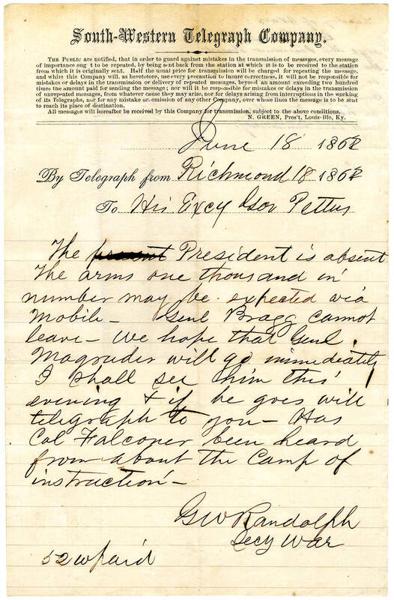 South-Western Telegraph Company.
The Public are notified, that in order to guard against mistakes in the transmission of messages, every message
of importance ought to be repeated, by being sent back from the station at which it is to be received to the station
from which it is originally sent. Half the usual price for transmission will be charged for repeating the message,
and while this Company will, as heretofore, use every precaution to insure correctness, it will not be responsible for
mistakes or delays in the transmission or delivery of repeated messages, beyond an amount exceeding two hundred
times the amount paid for sending the message; nor will it be responsible for mistakes or delays in the transmission of
unrepeated messages, from whatever cause they may arise, nor for delays arising from interruptions in the working
of its Telegraphs, nor for any mistake or omission of any other Company, over whose lines the message is to be sent
to reach its place of destination.
All messages will hereafter be received by this Company for transmission, subject to the above conditions.
N. GREEN, Pres't, Louisville, Ky.
June 18 1862
By Telegraph from Richmond 18 1862
To His Excy Gov Pettus
The President is absent
The arms one thousand in
number may be expeted via
Mobile - Genl Bragg cannot
leave - We hope that Genl
Magruder will go immediately
I shall see him this
evening & if he goes will
telegraph to you - Has
Col Falconer been heard
from about the Camp of
instruction -
GW Randolph
Secy War
52 W paid